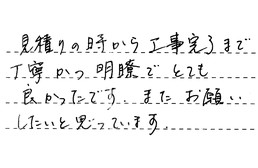 見積りの時から工事完了まで
丁寧かつ明瞭でとても
良かったです。またお願い
したいと思っています。